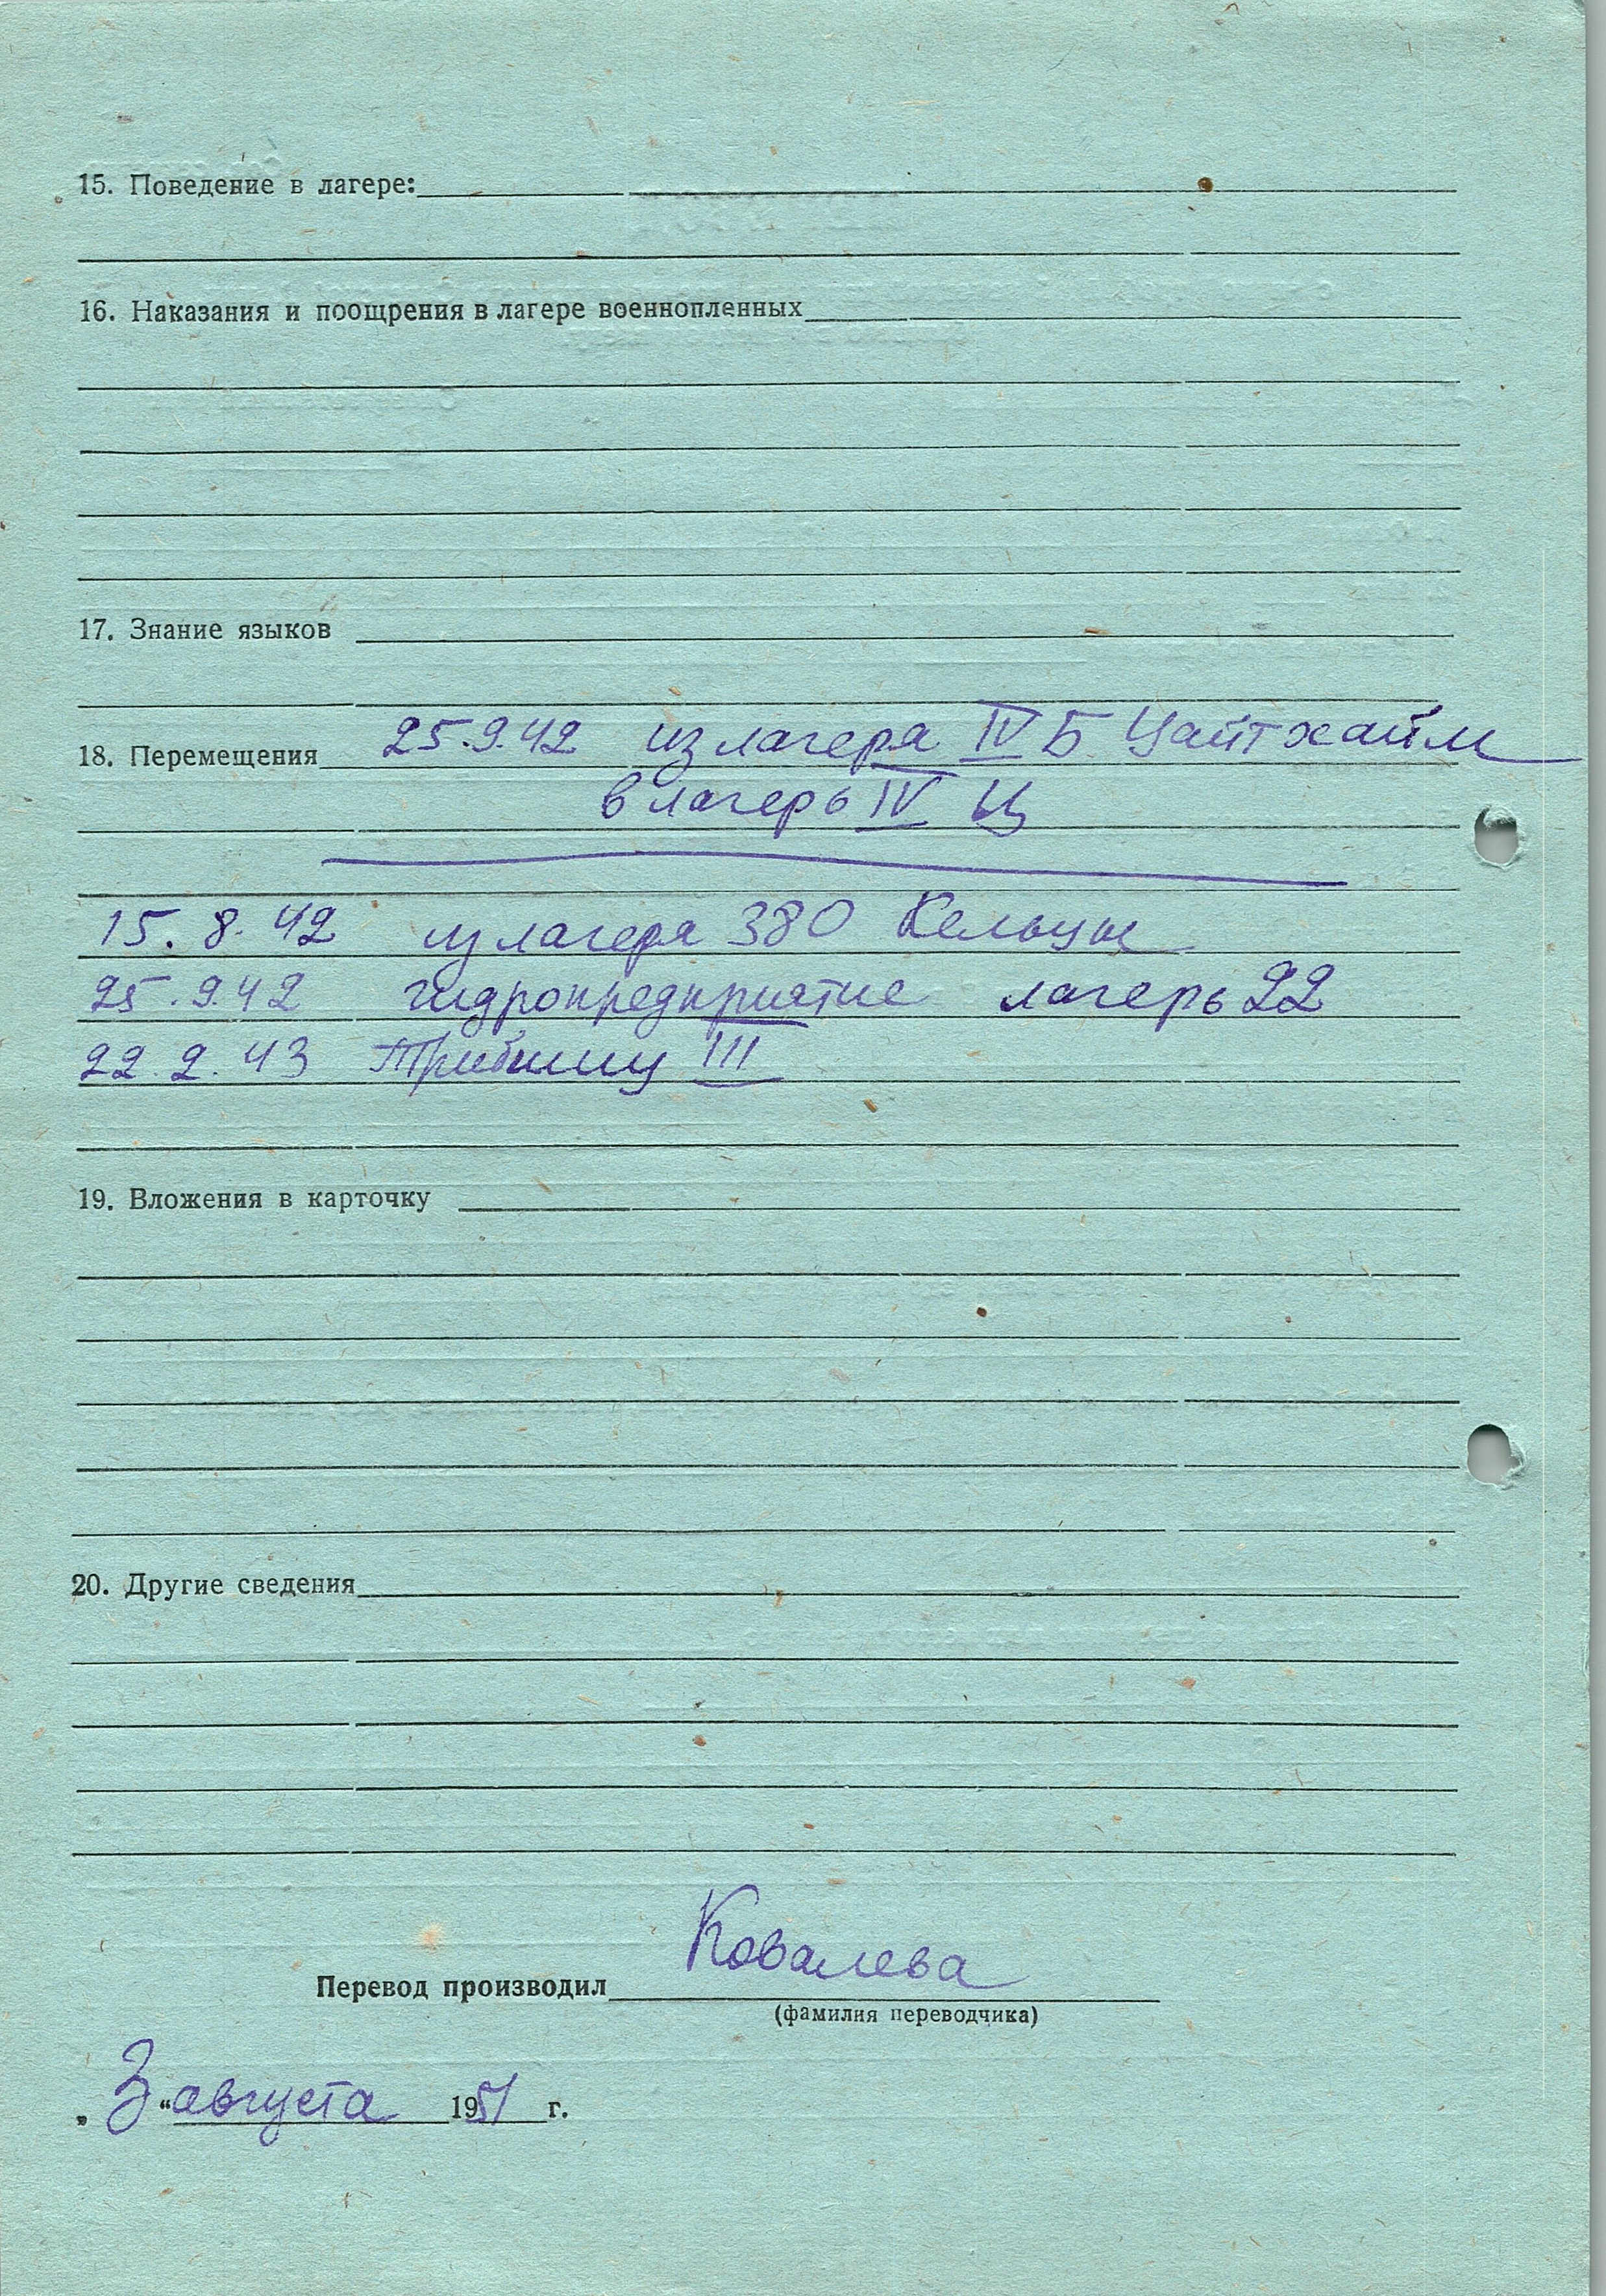 15. Поведение в лагере:
16. Наказания и поощрения в лагере военнопленных
17. Знание языков
18. Перемещения 25.9.42 из лагера IV Б Цайтхайм
в лагерь IV Ц
15.8.42 из лагера 380 Кельцы
25.9.42 гидропредприятие лагерь 22
22.2.43 III
19. Вложения в карточку
20. Другие сведения
Перевод производил Ковалева
(фамилия переводчика)
„3“ августа 1951 г.